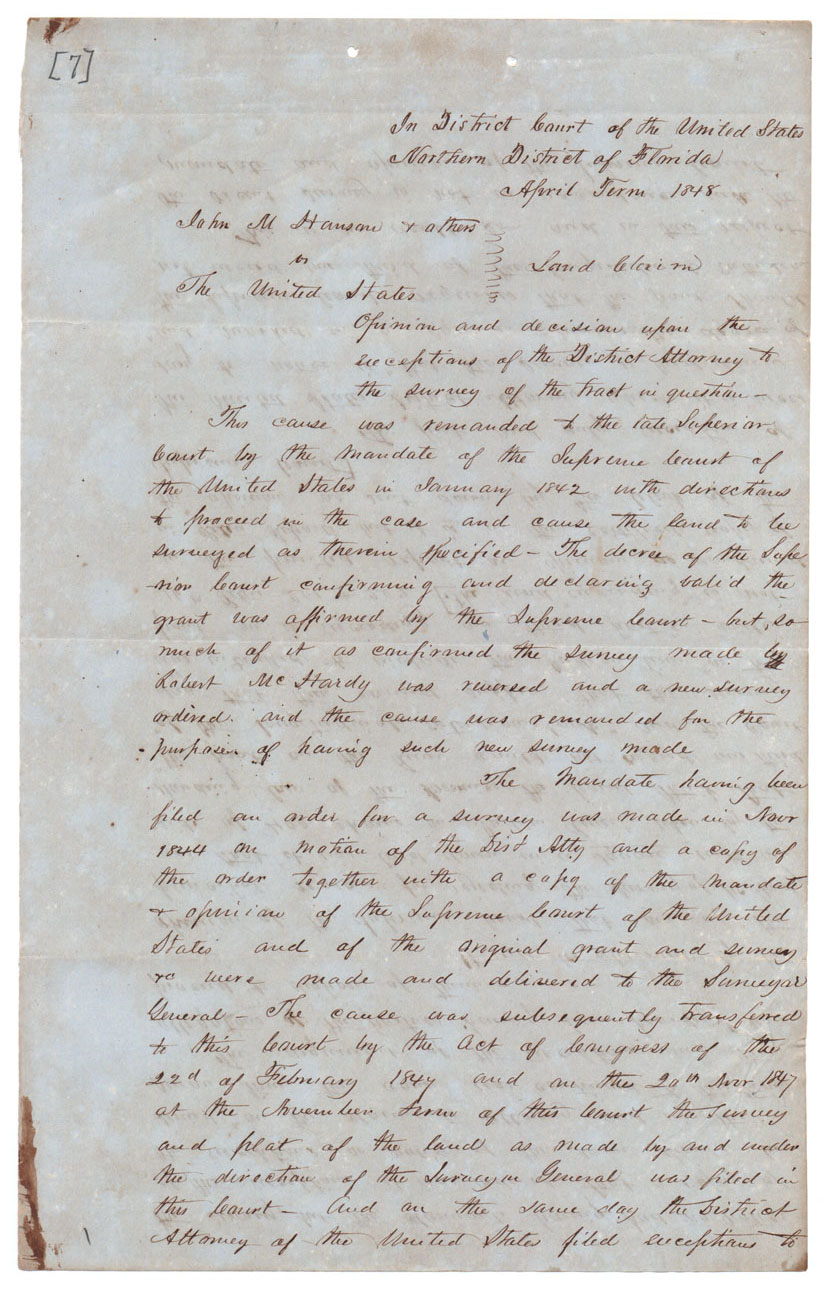 [7]
In District Court of the United States
Northern District of Florida
April Term 1848
John M Hanson & others
vs
Land Claim
The United States
Opinion and decision upon the
exceptions of the District Attorney to
the survey of the tract in question -
This cause was remanded to the late Superior
Court by the mandate of the Supreme Court of
the United States in January 1842 with directions
to proceed in the case and cause the land to be
surveyed as therein specified - The decree of the Supe
-rior Court confirming and declaring valid the
grant was affirmed by the Supreme Court - but, so
much of it as confirmed the survey made by
Robert McHardy was reversed and a new survey
ordered. and the cause was remanded for the
purpose of having such new survey made
The Mandate having been
filed an order for a survey was made in Novr
1844 on motion of the Dist Atty and a copy of
the order together with a copy of the mandate
& opinion of the Supreme Court of the United
States and of the original grant and survey
&c were made and delivered to the Surveyor
General - The cause was subsequently transferred
to this Court by the Act of Congress of the
22d of February 1847 and on the 20th Novr 1847
at the November term of this Court the Survey
and plat of the land as made by and under
the direction of the Surveyor General was filed in
this Court - And on the same day the District
Attorney of the United States filed exceptions to